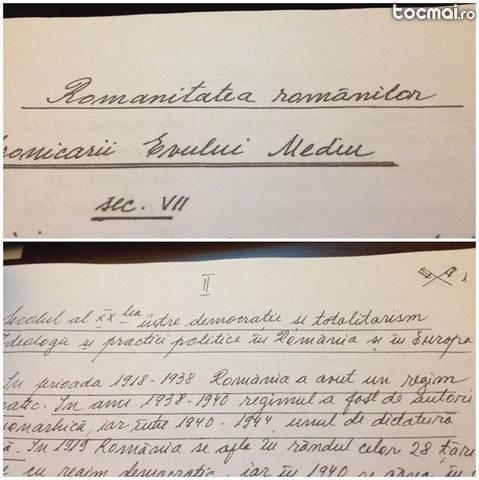 tocmai.ro
Romanitatea românilor
ronicarii Evului Mediu
sec. VII
II
Secolul al XX lea între democrație și totalitarism
Ideologii și practici politice în România și în Europa
În prioada 1918-1938 România a avut un regim
atic. În anii 1938-1940 regimul a fost de autori
onarhică, iar între 1940-1944, unul de dictatură
ă. În 1919 România se afla în rândul celor 28 țări
cu regim democratic, iar în 1940